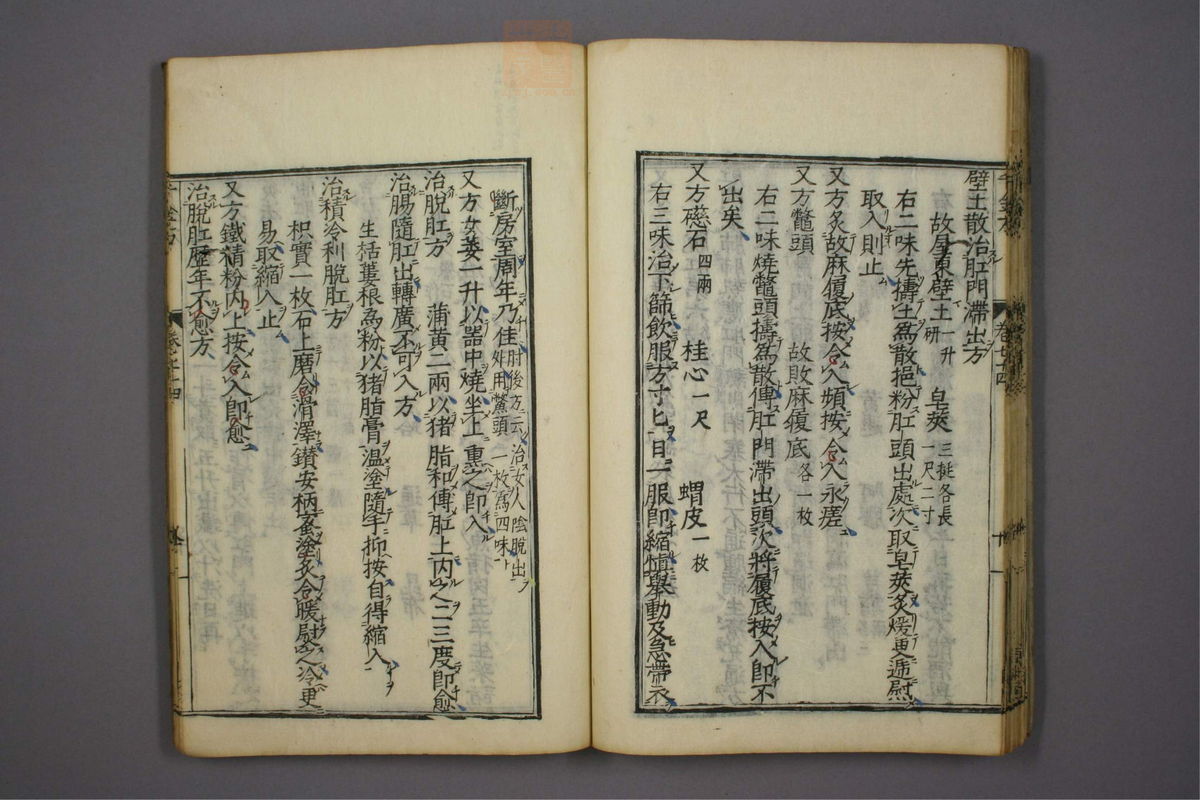 壁土散治肛門滯出方
故屋東壁土一升研 皂莢三挺各長一尺二寸
右二味先擣土為散挹粉肛頭出處次取皂莢炙煖更遞熨
取入則止
又方炙故麻履底按令入頻按令入永瘥
又方鼈頭 故敗麻履底各一枚
右二味燒鼈頭擣為散傅肛門滯出頭次將履底按入即不
出矣
又方磁石四兩 桂心一尺 蝟皮一枚
右三味治下篩飲服方寸匕日一服即縮慎舉動及急帶衣
斷房室周年乃佳肘後方云治女人陰脫出外用鱉頭一枚為四味
又方女萎一升以器中燒坐上熏之即入
治脫肛方 蒲黃二兩以猪脂和傅肛上內之二三度即愈
治腸隨肛出轉廣不可入方
生栝蔞根為粉以猪脂膏溫塗隨手抑按自得縮入
治積冷利脫肛方
枳實一枚石上磨令滑澤鑽安柄蜜塗炙令暖熨之冷更
易取縮入止
又方鐵精粉內上按令入即愈
治脫肛歷年不愈方